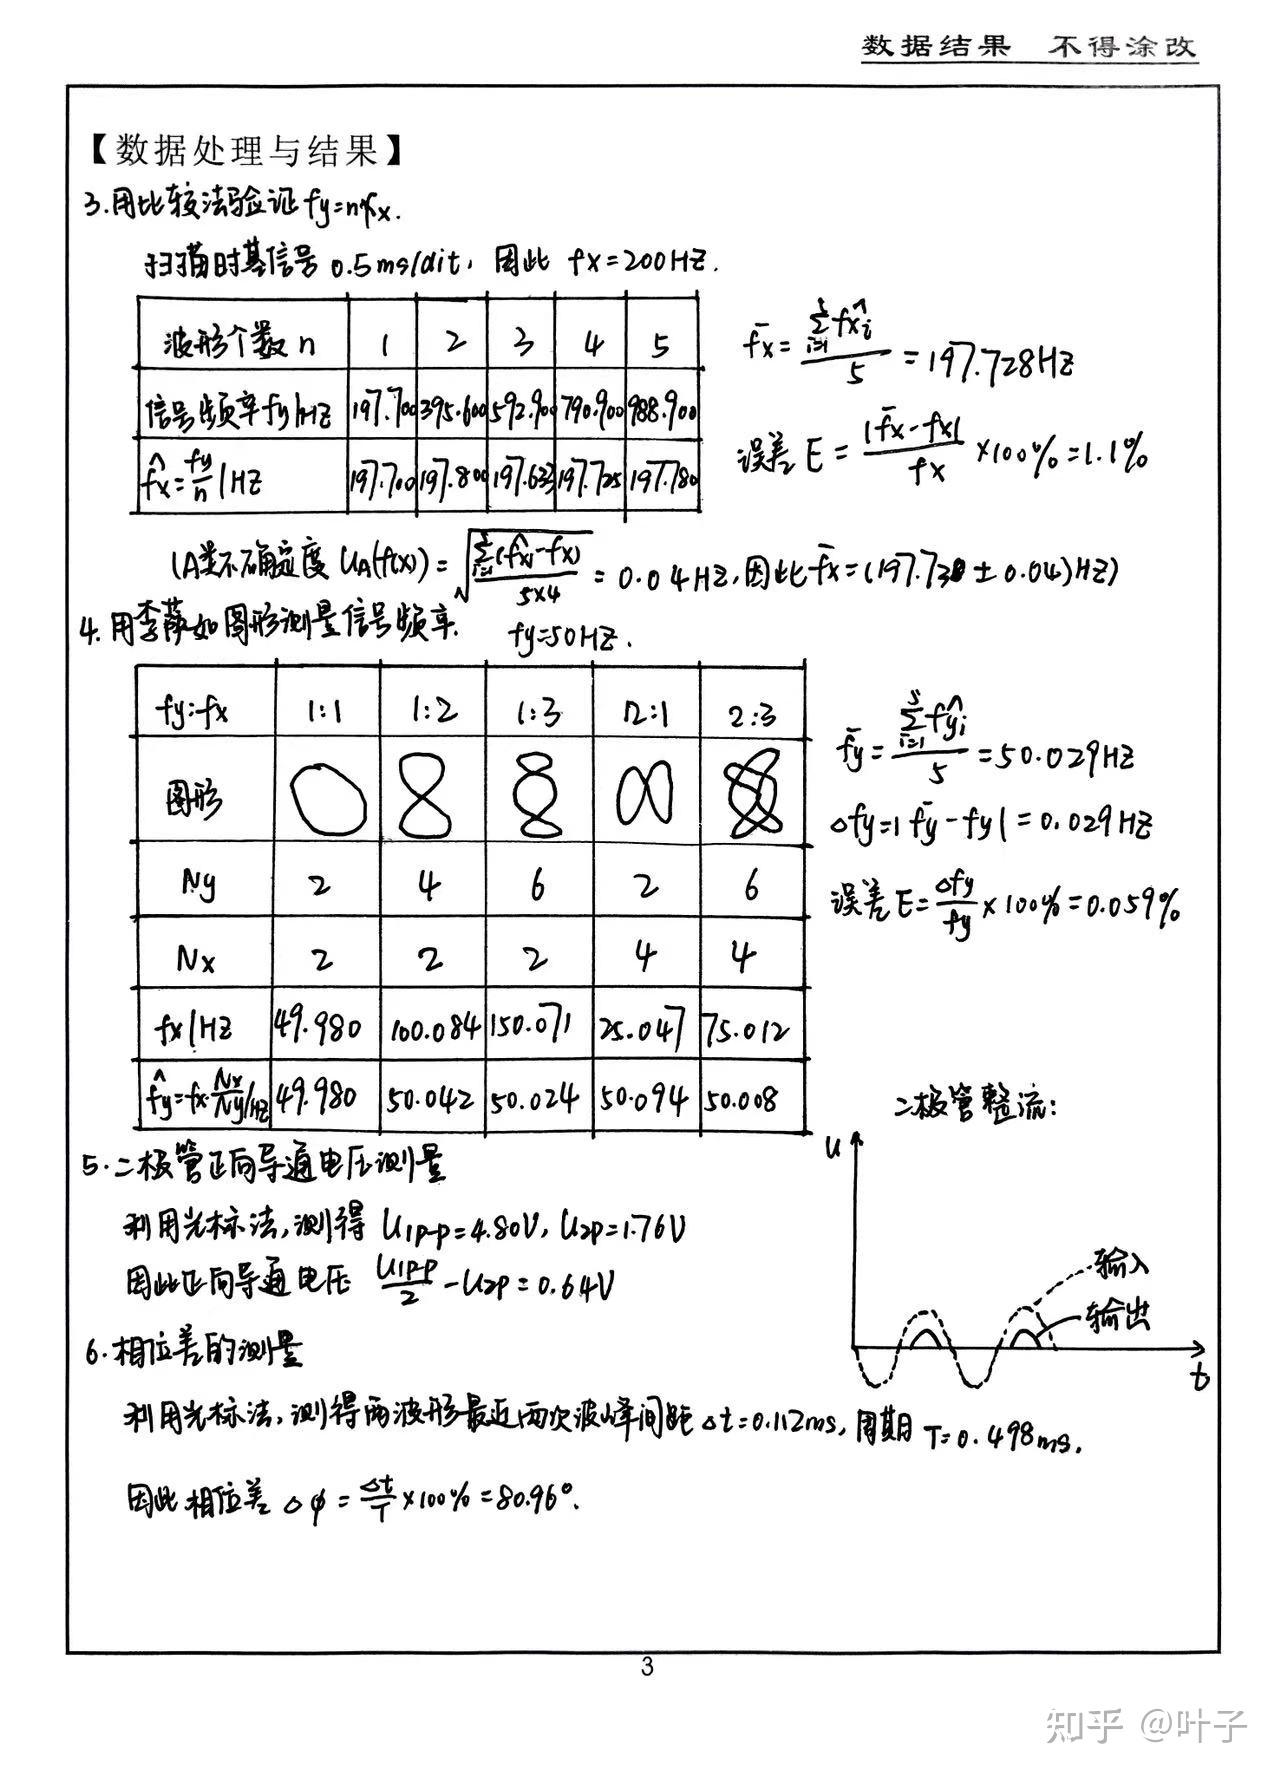 数据结果 不得涂改
【数据处理与结果】
3.用比较法验证fy=nfx.
扫描时基信号0.5ms/dit,因此 fx=200HZ.
波形个数n 1 2 3 4 5
信号频率fy/HZ 197.700 395.600 592.900 790.900 988.900
f̂x=fy/n/HZ 197.700 197.800 197.633 197.725 197.780
f̄x=∑(i=1→5)f̂xi/5=197.728HZ
误差E=|f̄x-fx|/fx×100%=1.1%
(A类不确定度 UA(f(x))=√(∑(i=1→5)(f̂xi-fx)/5×4)=0.04HZ,因此f̄x=(197.730±0.04)HZ)
4.用李萨如图形测量信号频率. fy=50HZ.
fy:fx 1:1 1:2 1:3 2:1 2:3
图形
Ny 2 4 6 2 6
Nx 2 2 2 4 4
fx/HZ 49.980 100.084 150.071 25.047 75.012
f̂y=fx·Nx/Ny/HZ 49.980 50.042 50.024 50.094 50.008
f̄y=∑(i=1→5)f̂yi/5=50.029HZ
△fy=|f̄y-fy|=0.029HZ
误差E=△fy/fy×100%=0.059%
5.二极管正向导通电压测量
利用光标法,测得U1P-P=4.80V,U2P=1.76V
因此正向导通电压 U1P-P/2-U2P=0.64V
二极管整流:
u
输入
输出
t
6.相位差的测量
利用光标法,测得两波形最近两次波峰间距△t=0.112ms,周期T=0.498ms.
因此相位差△φ=△t/T×100%=80.96°.
3
知乎 @叶子